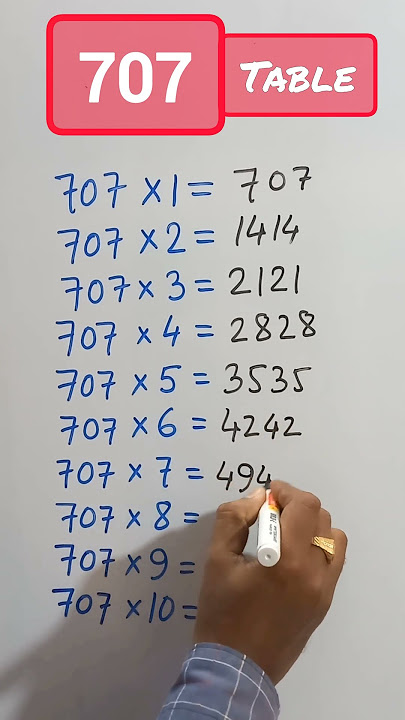 707 TABLE
707 × 1 = 707
707 × 2 = 1414
707 × 3 = 2121
707 × 4 = 2828
707 × 5 = 3535
707 × 6 = 4242
707 × 7 = 494
707 × 8 =
707 × 9 =
707 × 10 =